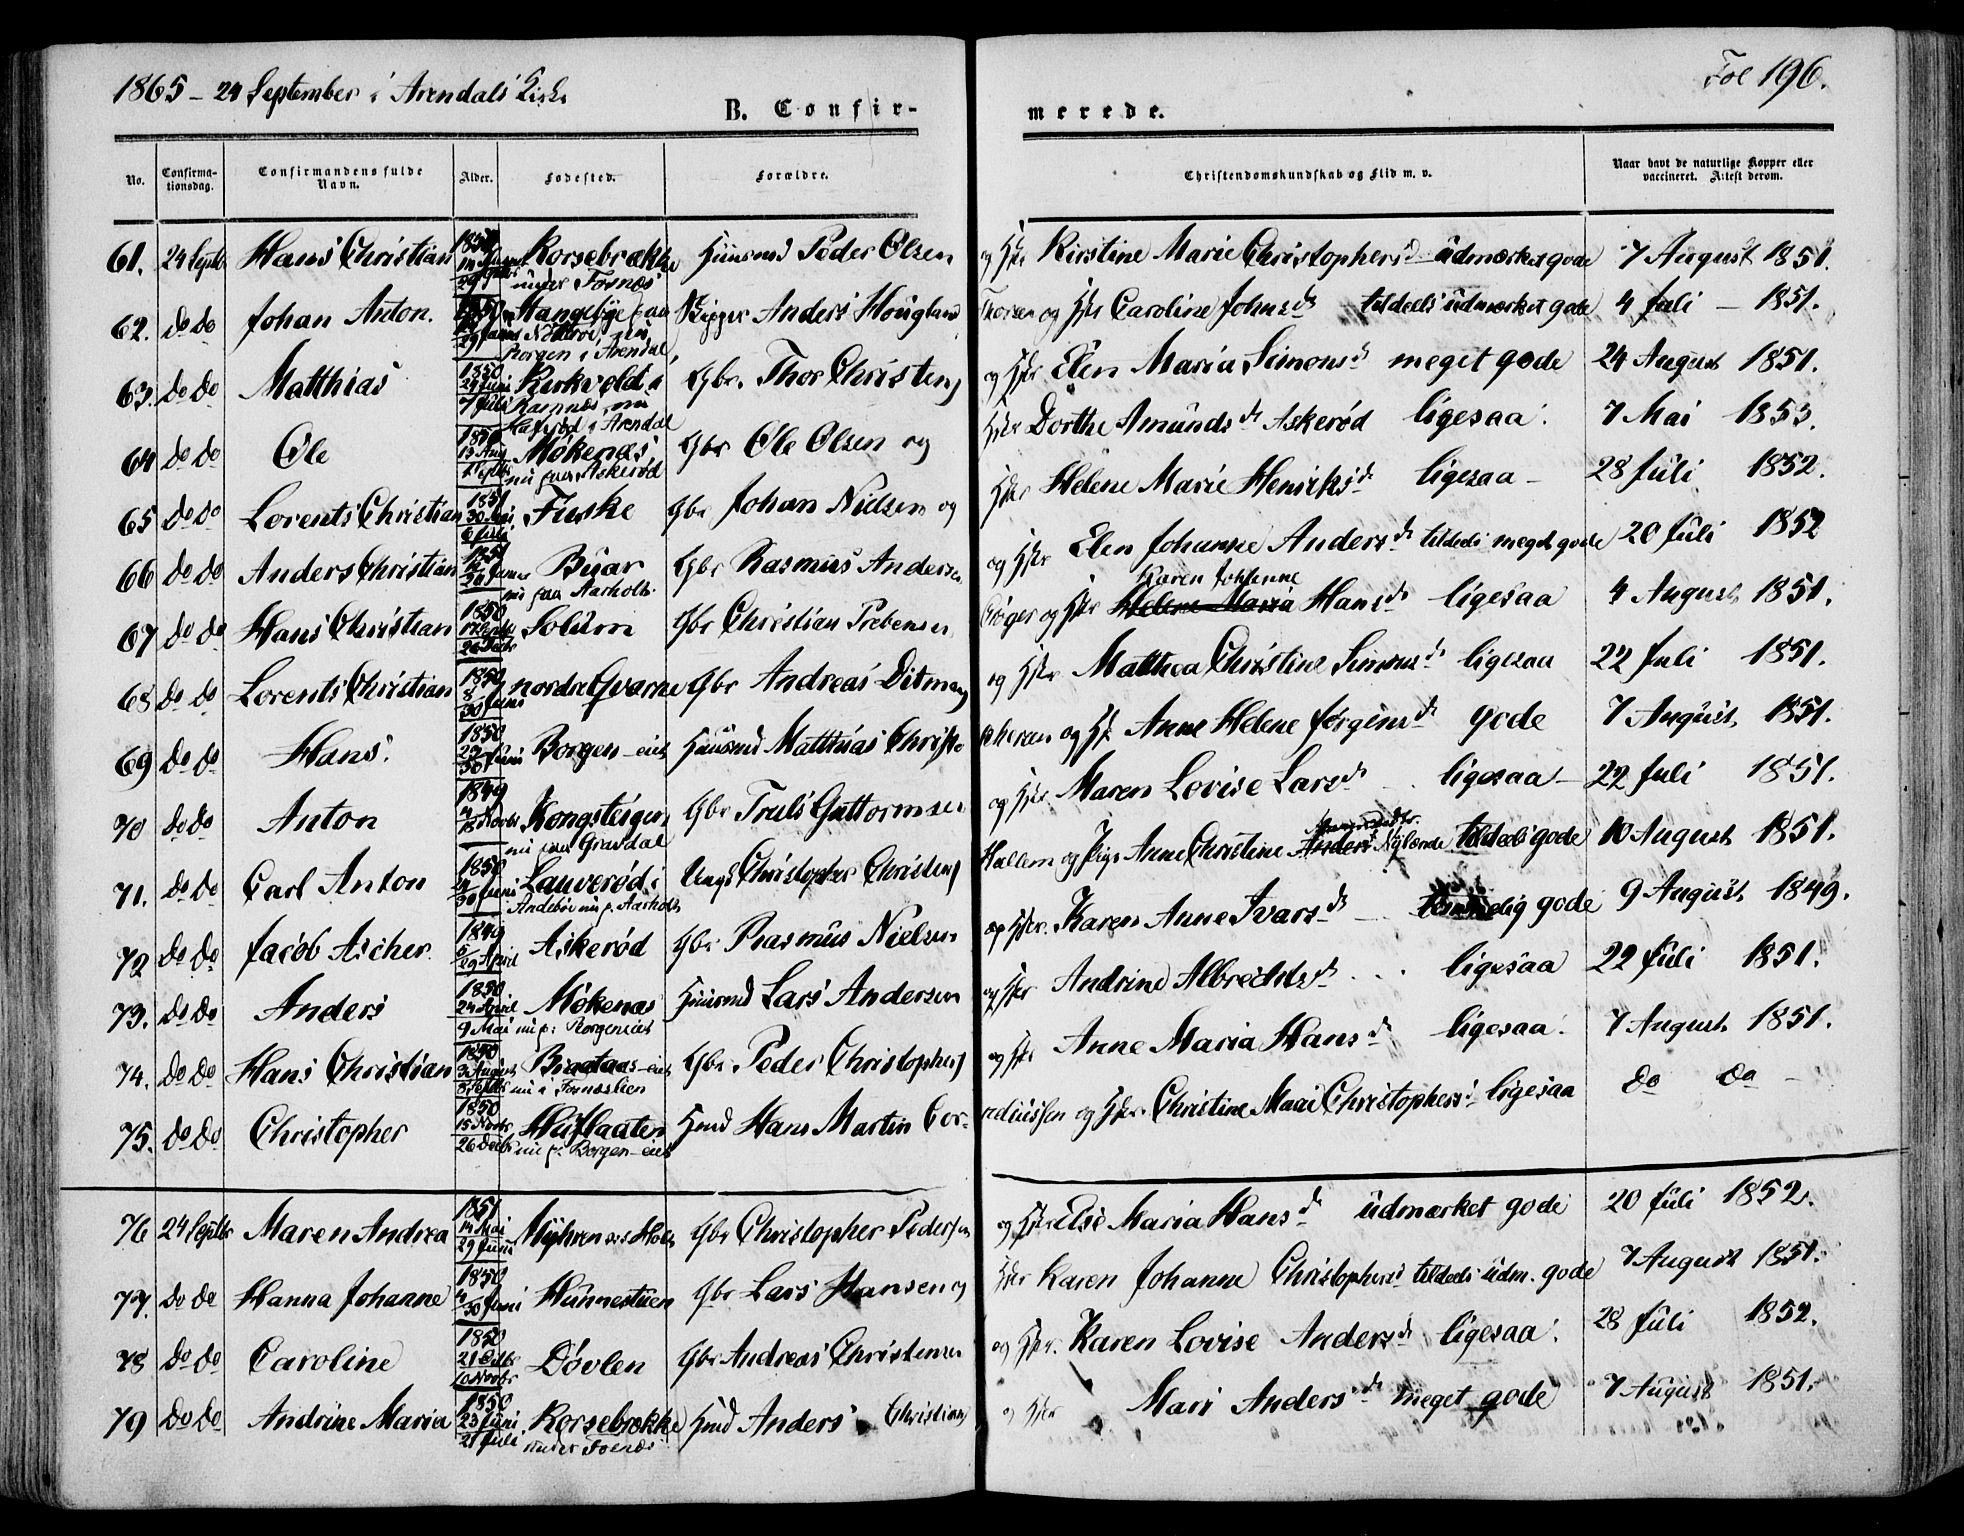 1865 - 24 September i Arendals Kirke
Fol 196.
B. Confir-
merede.
No.
Confirma-
tionsdag.
Confirmandens fulde
Navn.
Alder.
Fødested.
Forældre.
Christendomskundskab og Flid m. v.
Naar havt de naturlige Kopper eller
vaccineret. Attest derom.
61. 24 Septb Hans Christian 1850 Korsebrække under Fosnæs Huusmd Peder Olsen og Hstr Kirstine Marie Christophersd udmærket gode 7 August 1851.
62. do do Johan Anton. Mangebÿe paa Nøtterø, nu Borgen i Arendal, Anders Houglund og Hstr Caroline Johnsd tildeels udmærket gode 4 Juli - 1851.
63. do do Matthias 1850 24 Juni 7 Juli Kirkvold i Ramnæs, nu i Arendal Gbr. Thor Christens og Hstr Elen Maria Simonsd meget gode 24 August 1851.
64 do do Ole 1850 Møkenæs, nu paa Askerød Gbr Ole Olsen og Hstr Dorthe Amundsd Askerød ligesaa. 7 Mai 1853.
65 do do Lorents Christian 1851 30 Mai 6 Juli Fuske Gbr Johan Nielsen og Hstr Helene Marie Henriksd ligesaa - 28 Juli 1852.
66 do do Anders Christian 1851 Buar nu paa Aarholt. Gbr Rasmus Andersen og Hstr Elen Johanne Andersd tildeels meget gode 20 Juli 1852
67 do do Hans Christian 1850 26 Decbr Solum Gbr Christian Prebensen og Hstr Karen Johanne Helene Maria Hansd ligesaa 4 August 1851.
68 do do Lorents Christian 1850 8 30 Juni nordre Qvarne Gbr Andreas Ditmans og Hstr Matthea Christine Simonsd ligesaa 22 Juli 1851.
69 do do Hans. 1850 29 30 Juni Borgen-eiet Huusmd Matthias Christo pheran og Hstr Anne Helene Jørgensd gode 7 August 1851.
70 do do Anton 1849 Kongsteigen nu paa Gravdal Gbr Truls Guttormsen og Hstr Maren Lovise Larsd ligesaa - 22 Juli 1851.
71. do do Carl Anton 1850 30 Juni Lauverød i Andebøe nu p. Aarholt Ungk Christopher Christens Hallem og Pige Anne Christine Anders Nÿlænde tildeels gode 10 August 1851.
72 do do Jacob Ascher. 1849 29 April Askerød Gbr Rasmus Nielsen og Hstr. Karen Anne Ivarsd temmelig gode 9 August 1849.
73. do do Anders 1850 24 April 9 Mai Møkenæs nu p: Borgeneiet Huusmd Lars Andersen og Hstr Andrine Albrechtsd ligesaa 22 Juli 1851.
74. do do Hans Christian 1850 3 August Braataas-eiet nu i Fornæslien Gbr. Peder Christophers og Hstr Anne Maria Hansd ligesaa. 7 August 1851.
75. do do Christopher 1850 15 Novbr 26 Decbr Huflaaten nu p. Borgen-eiet Hmd Hans Martin Cor- neliussen og Hstr. Christine Mari Christophersd ligesaa do do -
76 24 Septbr Maren Andrea 1851 14 Mai 29 Juni Mÿhren Gbr Christopher Pedersen og Hstr Else Maria Hansd udmærket gode 20 Juli 1852.
77. do do Hanna Johanne 1850 4 30 Juni Hunnestuen Gbr Lars Hansen og Hstr Karen Johanne Christophersd tildeels udm. gode 7 August 1851.
78 do do Caroline 1850 21 Octbr 10 Novbr Døvlen Gbr Andreas Christensen og Hstr. Karen Lovise Andersd ligesaa. 28 Juli 1852.
79 do do Andrine Maria 1850 23 Juni 21 Juli. Korsebrække under Fosnæs Hmd Anders Christians og Hstr Mari Andersd meget gode 7 August 1851.